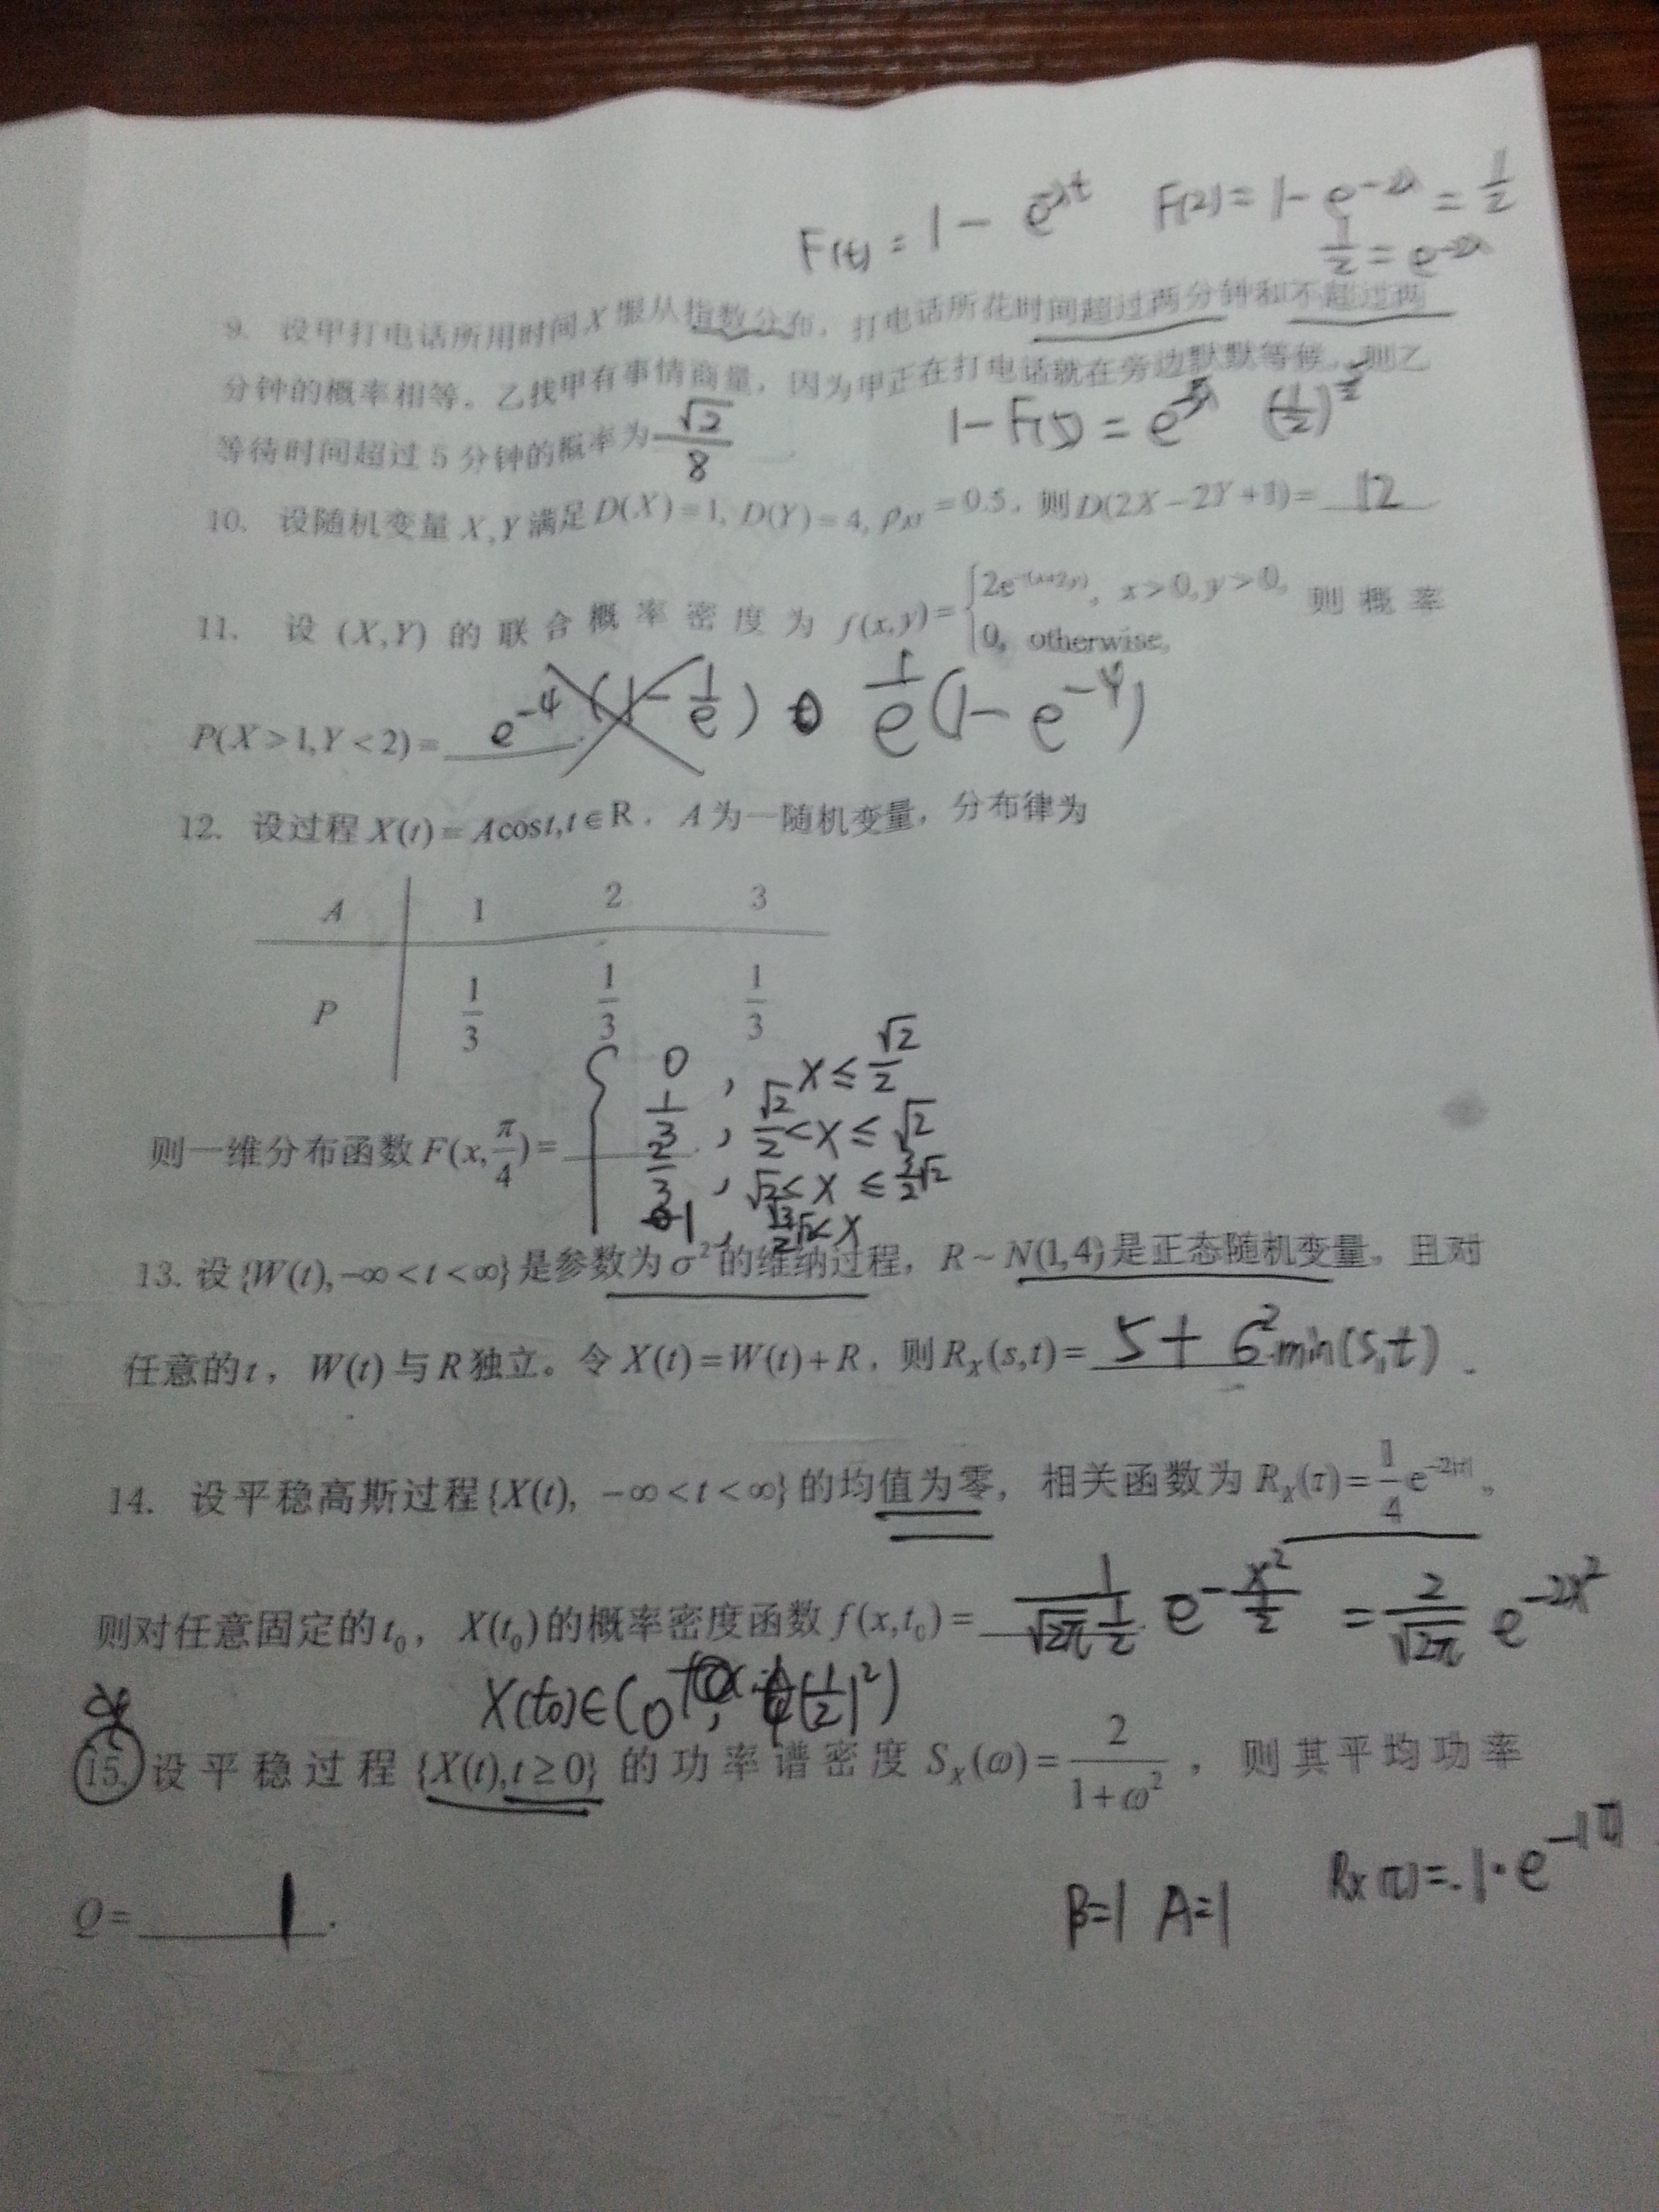 F(t) = 1 - e^{-λt} F(2) = 1 - e^{-2λ} = 1/2
1/2 = e^{-2λ}
9. 设甲打电话所用时间X服从指数分布,打电话所花时间超过两分钟和不超过两
分钟的概率相等。乙找甲有事情商量,因为甲正在打电话就在旁边默默等候,则乙
1-F(5) = e^{-5λ} (1/2)^{5/2}
等待时间超过5分钟的概率为 √2/8 .
10. 设随机变量X,Y满足D(X)=1, D(Y)=4, ρ_{XY}=0.5, 则D(2X-2Y+1)= 12
11. 设 (X,Y) 的联合概率密度为 f(x,y)= { 2e^{-(x+2y)}, x>0,y>0, 则概率
0, otherwise,
P(X>1,Y<2)= e^{-4} (1-1/e) 1/e (1-e^{-4})
12. 设过程X(t)=Acost,t∈R, A为一随机变量,分布律为
A 1 2 3
P 1/3 1/3 1/3
0 , x ≤ √2/2
则一维分布函数F(x,π/4)= { 1/3 , √2/2 < x ≤ √2
2/3 , √2 < x ≤ 3/2√2
1 , 3/2√2 < x
13. 设{W(t),-∞<t<∞}是参数为σ²的维纳过程, R~N(1,4)是正态随机变量,且对
任意的t, W(t)与R独立。令X(t)=W(t)+R, 则R_X(s,t)= 5+σ²min(s,t) .
14. 设平稳高斯过程{X(t), -∞<t<∞}的均值为零, 相关函数为R_X(τ)=1/4 e^{-2|τ|}。
则对任意固定的t₀, X(t₀)的概率密度函数f(x,t₀)= 1/(√2π 1/2) e^{-x²/(1/2)} = 2/√2π e^{-2x²}
X(t₀)∈(0, (1/2)²)
15. 设平稳过程{X(t),t≥0}的功率谱密度S_X(ω)=2/(1+ω²), 则其平均功率
Q= 1 .
B=1 A=1 R_X(τ)=1·e^{-|τ|}